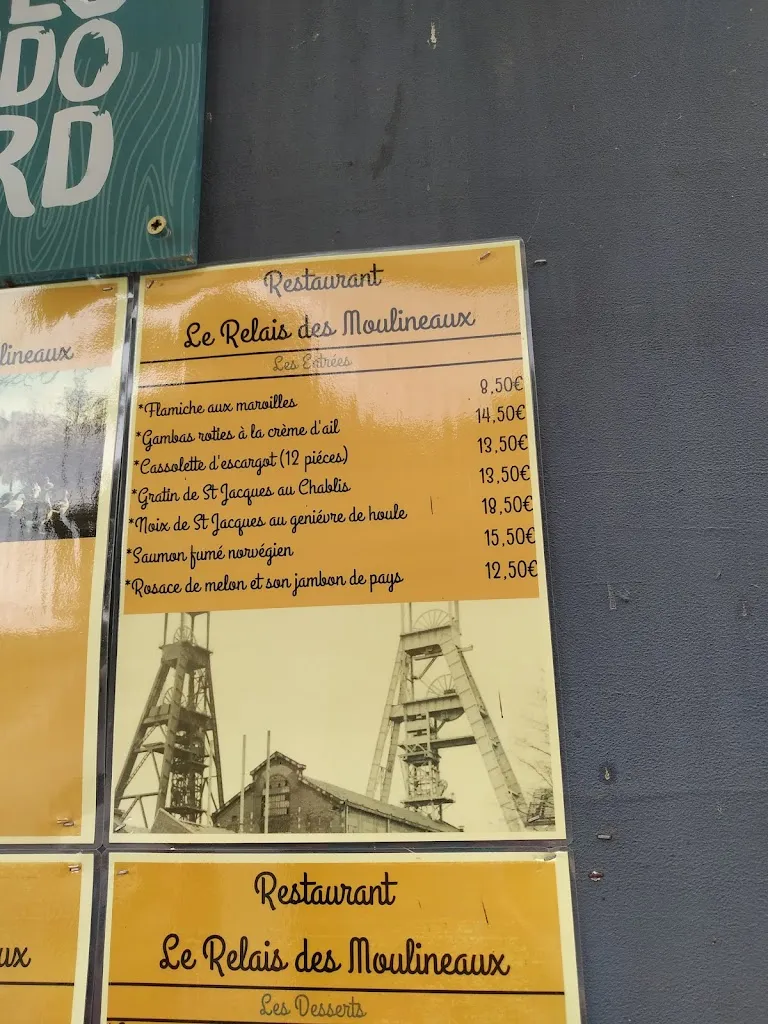 DO
RD
lineaux
Restaurant
Le Relais des Moulineaux
Les Entrées
*Flamiche aux maroilles 8,50€
*Gambas roties à la crème d'ail 14,50€
*Cassolette d'escargot (12 piéces) 13,50€
*Gratin de St Jacques au Chablis 13,50€
*Noix de St Jacques au geniévre de houle 18,50€
*Saumon fumé norvégien 15,50€
*Rosace de melon et son jambon de pays 12,50€
ux
Restaurant
Le Relais des Moulineaux
Les Desserts